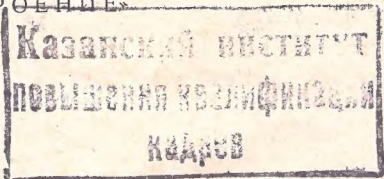 ОЕНИЕ»
Казанский институт
повышения квалификации
кадров